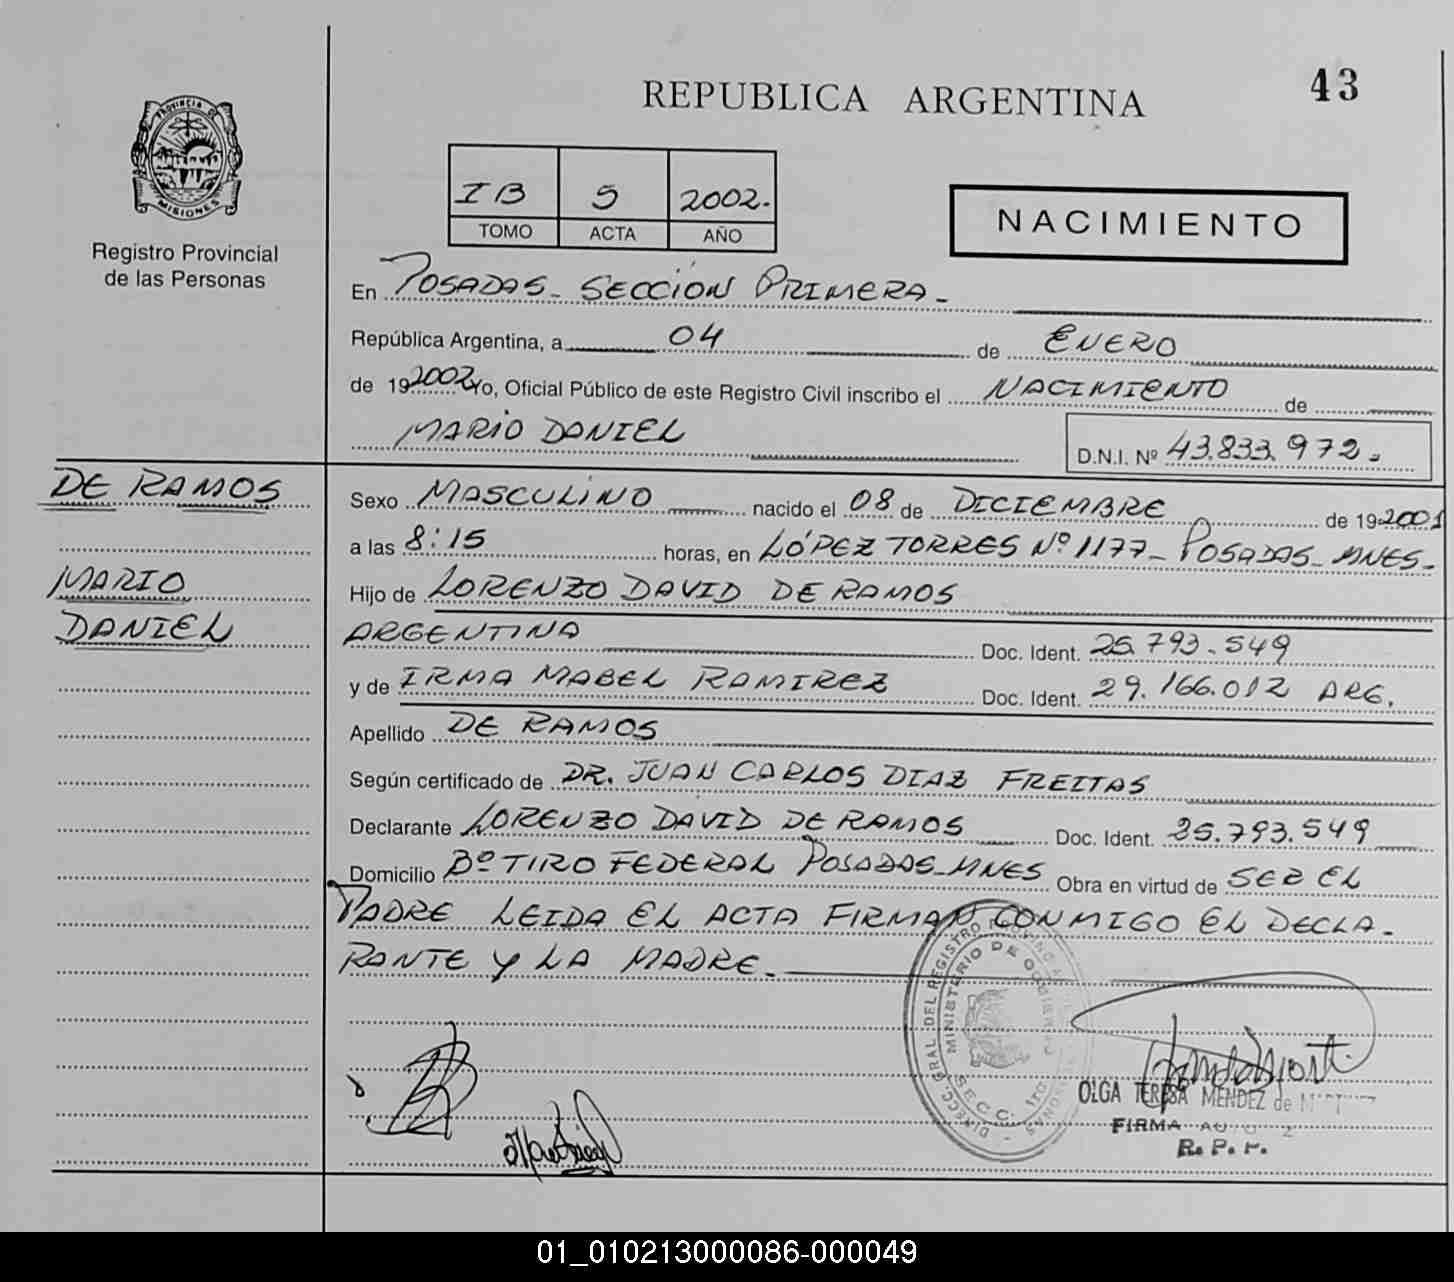 43
REPUBLICA ARGENTINA
PROVINCIA DE
MISIONES
Registro Provincial
de las Personas
IB 5 2002.
TOMO ACTA AÑO
NACIMIENTO
En POSADAS - SECCIÓN PRIMERA -
República Argentina, a 04 de ENERO
de 192002 Yo, Oficial Público de este Registro Civil inscribo el NACIMIENTO de
MARIO DANIEL
D.N.I. Nº 43.833.972.
DE RAMOS
MARIO
DANIEL
Sexo MASCULINO nacido el 08 de DICIEMBRE de 192001
a las 8:15 horas, en LÓPEZ TORRES Nº 1177 - POSADAS - MNES -
Hijo de LORENZO DAVID DE RAMOS
ARGENTINA Doc. Ident. 25.793.549
y de IRMA MABEL RAMIREZ Doc. Ident. 29.166.012 ARG.
Apellido DE RAMOS
Según certificado de DR. JUAN CARLOS DIAZ FREITAS
Declarante LORENZO DAVID DE RAMOS Doc. Ident. 25.793.549
Domicilio Bº TIRO FEDERAL POSADAS - MNES Obra en virtud de SER EL
PADRE LEIDA EL ACTA FIRMAN CONMIGO EL DECLA-
RANTE Y LA MADRE.
DIRECC. GRAL. DEL REGISTRO
MINISTERIO DE GOBIERNO
SECC. 1ra
OLGA TERESA MENDEZ de
FIRMA
R. P. P.
01_010213000086-000049